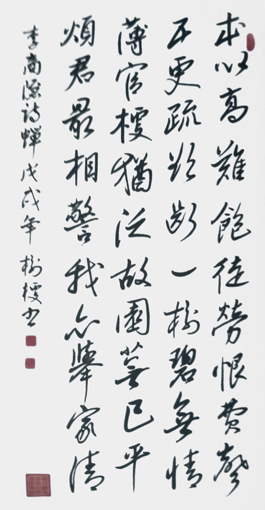 本以高難飽徒勞恨費聲
五更疏欲斷一樹碧無情
薄宦梗猶泛故園蕪已平
煩君最相警我亦舉家清
李商隱詩蟬戊戌年樹书